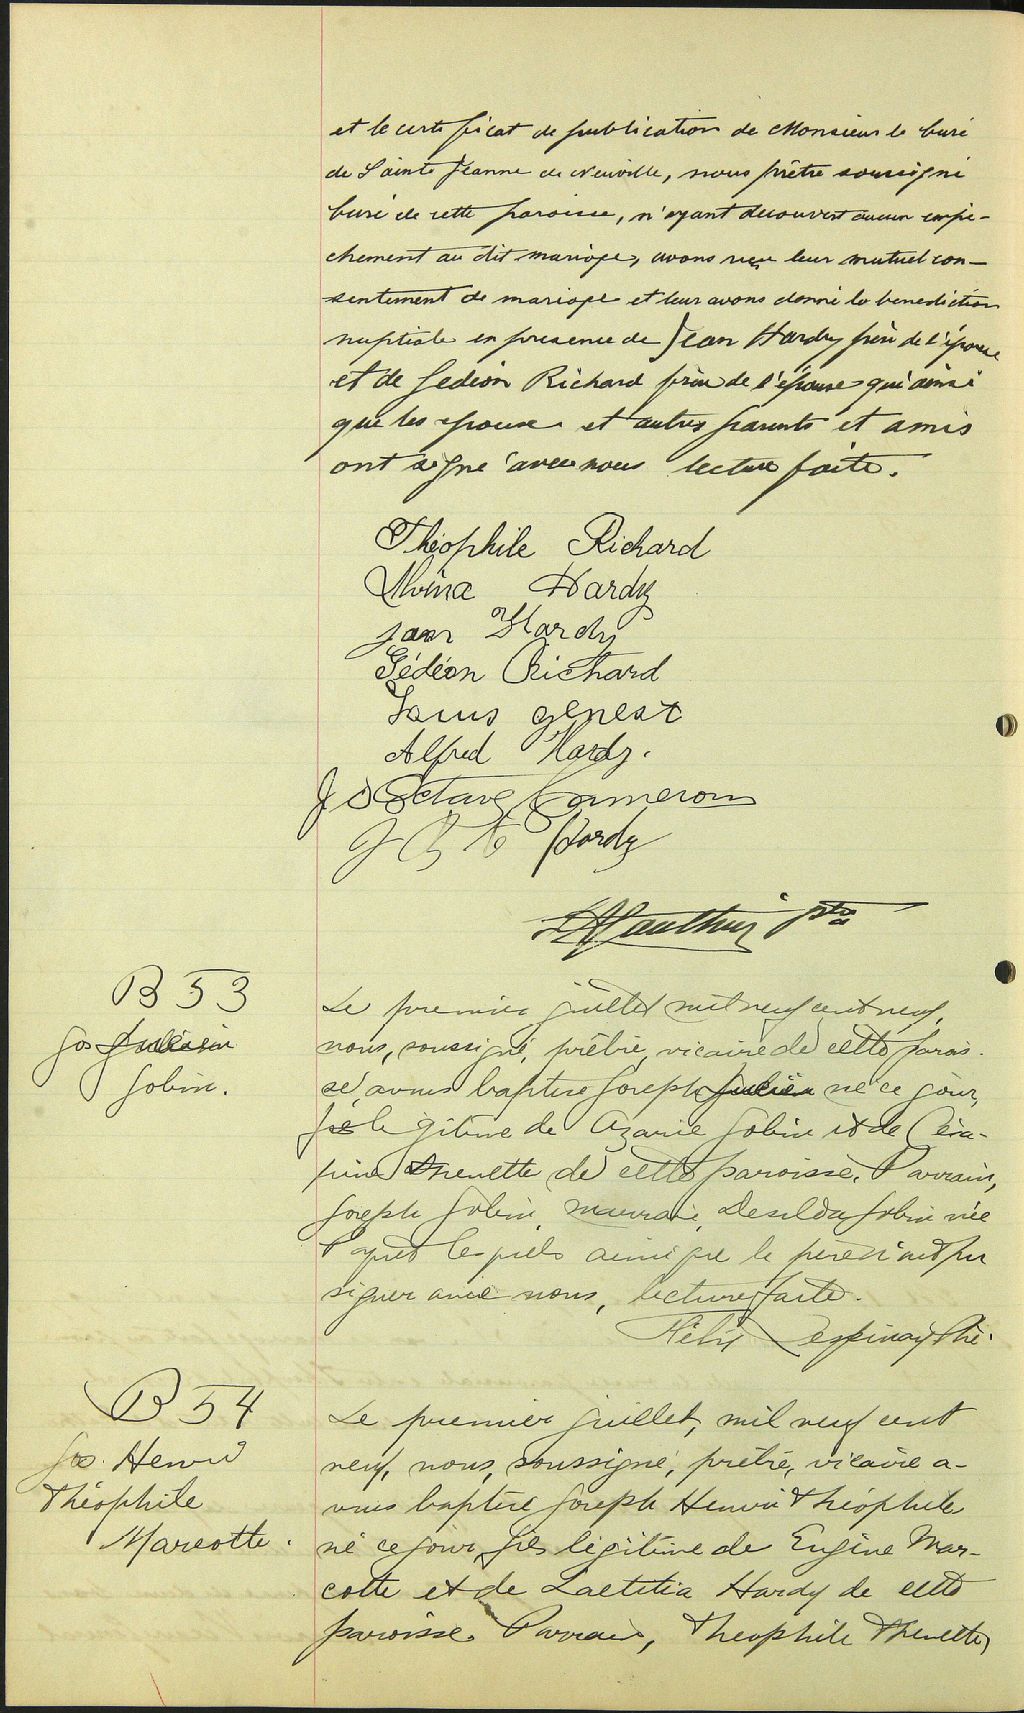 et le certificat de publication de Monsieur le Curé
de Sainte Jeanne de Neuville, nous prêtre soussigné
Curé de cette paroisse, n'ayant decouvert aucun empê-
chement au dit mariage, avons reçu leur mutuel con-
sentement de mariage et leur avons donné la benediction
nuptiale en presence de Jean Hardy père de l'épouse
et de Gedeon Richard de l'épouse qui ainsi
que les epoux et autres parents et amis
ont signé avec nous lecture faite.
Théophile Richard
Alvina Hardy
Jean Hardy
Gédéon Richard
Louis genest
Alfred Hardy.
Octave
Hardy
Gauthier ptre
B 53
Jos Julien
Jobin.
Le premier juillet mil neuf cent neuf,
nous, soussigné, prêtre, vicaire de cette parois-
se, avons baptisé Joseph Julien né ce jour,
fils légitime de Azarie Jobin et de Céra-
pine Thenette de cette paroisse. Parrain,
Joseph Jobin, marraine, Desilda Jobin née
lesquels ainsi que le père n'ont pu
signer avec nous, lecture faite.
Félix Lespinay Ptre.
B 54
Jos. Henri
Théophile
Marcotte.
Le premier juillet, mil neuf cent
neuf, nous, soussigné, prêtre, vicaire a-
vons baptisé Joseph Henri Théophile
né ce jour, fils légitime de Eugène Mar-
cotte et de Laetitia Hardy de cette
paroisse. Parrain, Théophile Thenette,